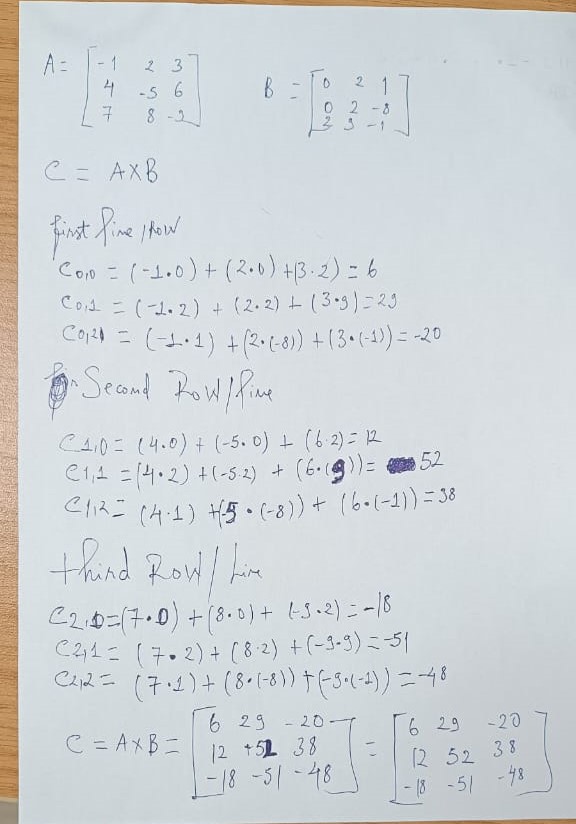 A = [-1 2 3 B = [0 2 1
4 -5 6 0 2 -8
7 8 -9] 2 9 -1]
C = A×B
first line/row
C0,0 = (-1·0) + (2·0) + (3·2) = 6
C0,1 = (-1·2) + (2·2) + (3·9) = 29
C0,2 = (-1·1) + (2·(-8)) + (3·(-1)) = -20
Second Row/line
C1,0 = (4·0) + (-5·0) + (6·2) = 12
C1,1 = (4·2) + (-5·2) + (6·(9)) = 52
C1,2 = (4·1) + (-5·(-8)) + (6·(-1)) = 38
third Row/Line
C2,0 = (7·0) + (8·0) + (-9·2) = -18
C2,1 = (7·2) + (8·2) + (-9·9) = -51
C2,2 = (7·1) + (8·(-8)) + (-9·(-1)) = -48
C = A×B = [6 29 -20 = [6 29 -20
12 +52 38 12 52 38
-18 -51 -48] -18 -51 -48]